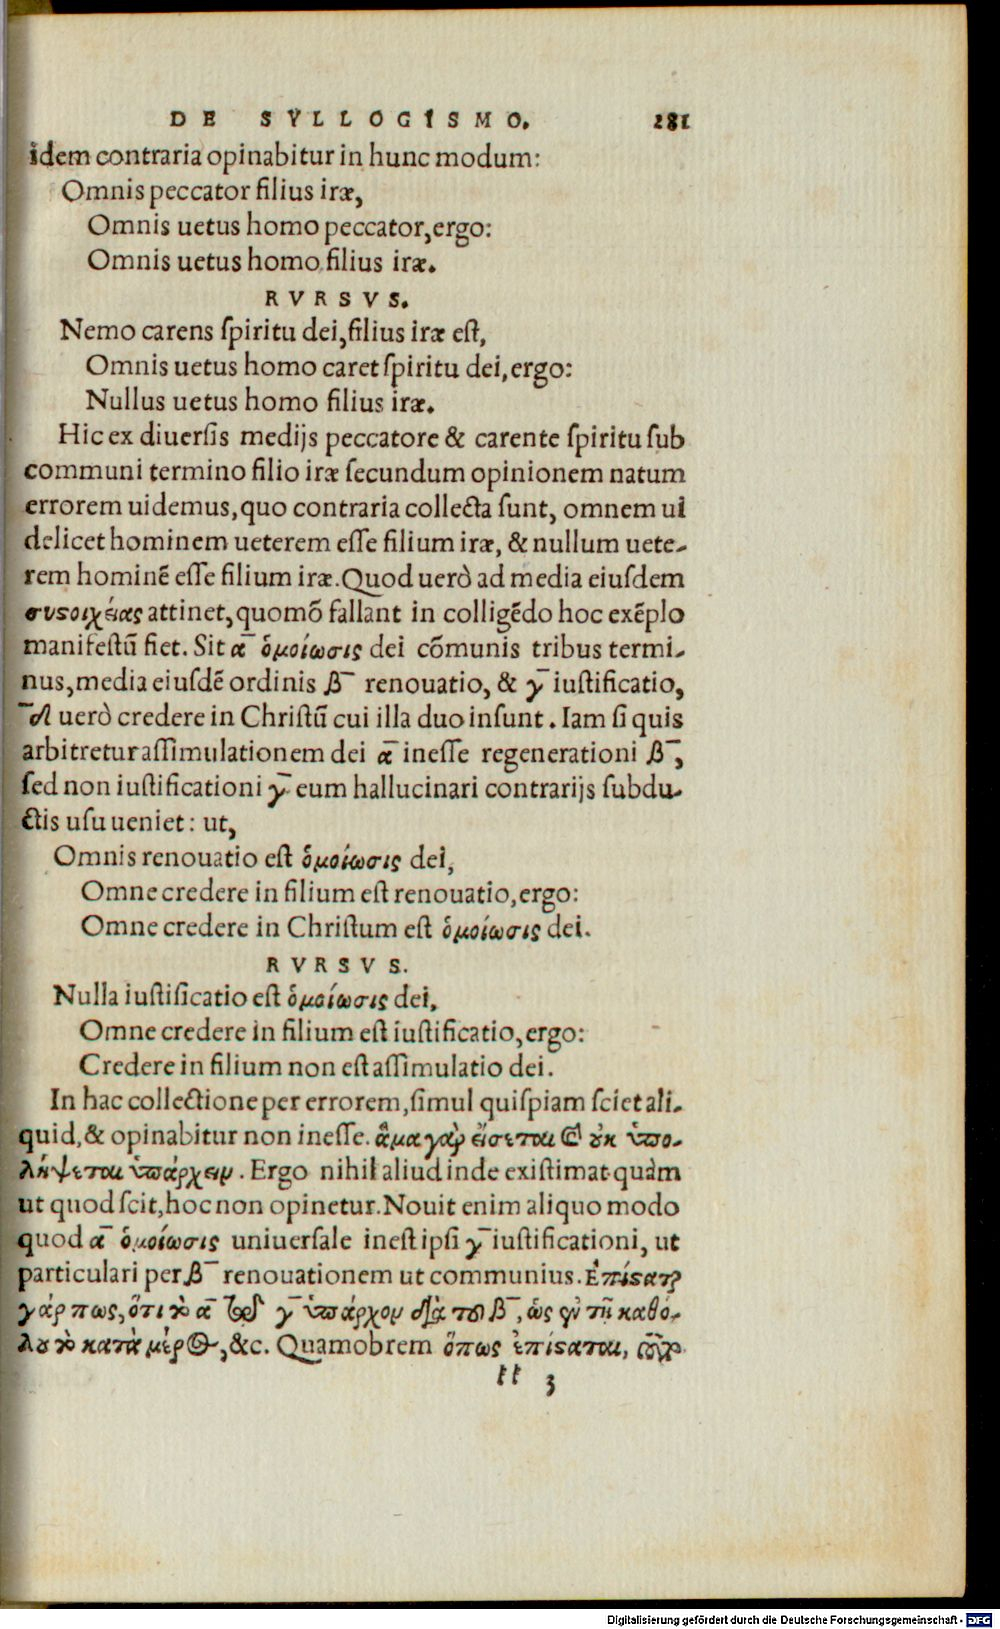 DE SYLLOGISMO. 281
idem contraria opinabitur in hunc modum:
Omnis peccator filius iræ,
Omnis uetus homo peccator, ergo:
Omnis uetus homo filius iræ.
RVRSVS.
Nemo carens ſpiritu dei, filius iræ eſt,
Omnis uetus homo caret ſpiritu dei, ergo:
Nullus uetus homo filius iræ.
Hic ex diuerſis medijs peccatore & carente ſpiritu ſub
communi termino filio iræ ſecundum opinionem natum
errorem uidemus, quo contraria collecta ſunt, omnem ui
delicet hominem ueterem eſſe filium iræ, & nullum uete-
rem hominē eſſe filium iræ. Quod uerò ad media eiuſdem
συϛοιχείας attinet, quomō fallant in colligēdo hoc exēplo
manifeſtū fiet. Sit α ὁμοίωσις dei cōmunis tribus termi-
nus, media eiuſdē ordinis β renouatio, & γ iuſtificatio,
δ uerò credere in Chriſtū cui illa duo inſunt. Iam ſi quis
arbitretur aſſimulationem dei α ineſſe regenerationi β,
ſed non iuſtificationi γ eum hallucinari contrarijs ſubdu-
ctis uſu ueniet: ut,
Omnis renouatio eſt ὁμοίωσις dei,
Omne credere in filium eſt renouatio, ergo:
Omne credere in Chriſtum eſt ὁμοίωσις dei.
RVRSVS.
Nulla iuſtificatio eſt ὁμοίωσις dei,
Omne credere in filium eſt iuſtificatio, ergo:
Credere in filium non eſt aſſimulatio dei.
In hac collectione per errorem, ſimul quiſpiam ſciet ali-
quid, & opinabitur non ineſſe. ἅμα γὰρ εἴσεται καὶ οὐκ ὑπο-
λήψεται ὑπάρχειν. Ergo nihil aliud inde exiſtimat quàm
ut quod ſcit, hoc non opinetur. Nouit enim aliquo modo
quod α ὁμοίωσις uniuerſale ineſt ipſi γ iuſtificationi, ut
particulari per β renouationem ut communius. Ἐπίϛαται
γάρ πως, ὅτι τὸ α τῷ γ ὑπάρχον διὰ τοῦ β, ὡς ἐν τῇ καθό-
λου τὸ κατὰ μέρος, &c. Quamobrem ὅπως ἐπίϛαται,
tt 3
Digitalisierung gefördert durch die Deutsche Forschungsgemeinschaft - DFG